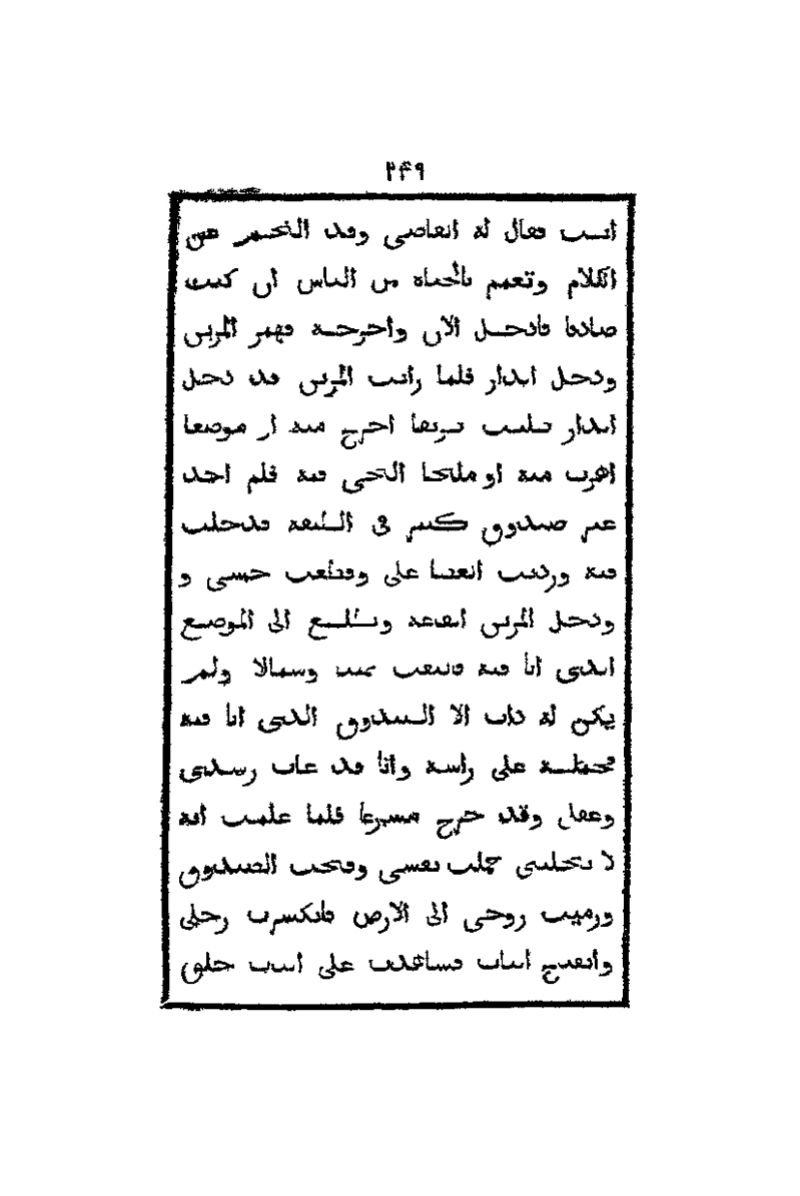 ٢٤٩
انت فقال له القاضي وقد التجم عن
الكلام وتغمم بالحياه من الناس ان كنت
صادقا فادخل الان واخرجه فهمر المزين
ودخل الدار فلما رايت المزين قد دخل
الدار طلبت طريقا اخرج منه او موضعا
اهرب منه او ملتجا التجي فيه فلم اجد
غير صندوق كبير في الطبقة فدخلت
فيه ورديت الغطا علي وقطعت حسي و
ودخل المزين القاعه وتطلع الى الموضع
الذي انا فيه فالتفت يمين وشمالا ولم
يكن له داب الا الصندوق الذي انا فيه
فحمله على راسه وانا قد غاب رشدي
وعقلي وقد خرج مسرعا فلما علمت انه
لا يخليني حملت نفسي وفتحت الصندوق
ورميت روحي الى الارض فانكسرت رجلي
وانفتح الباب على الباب خلق